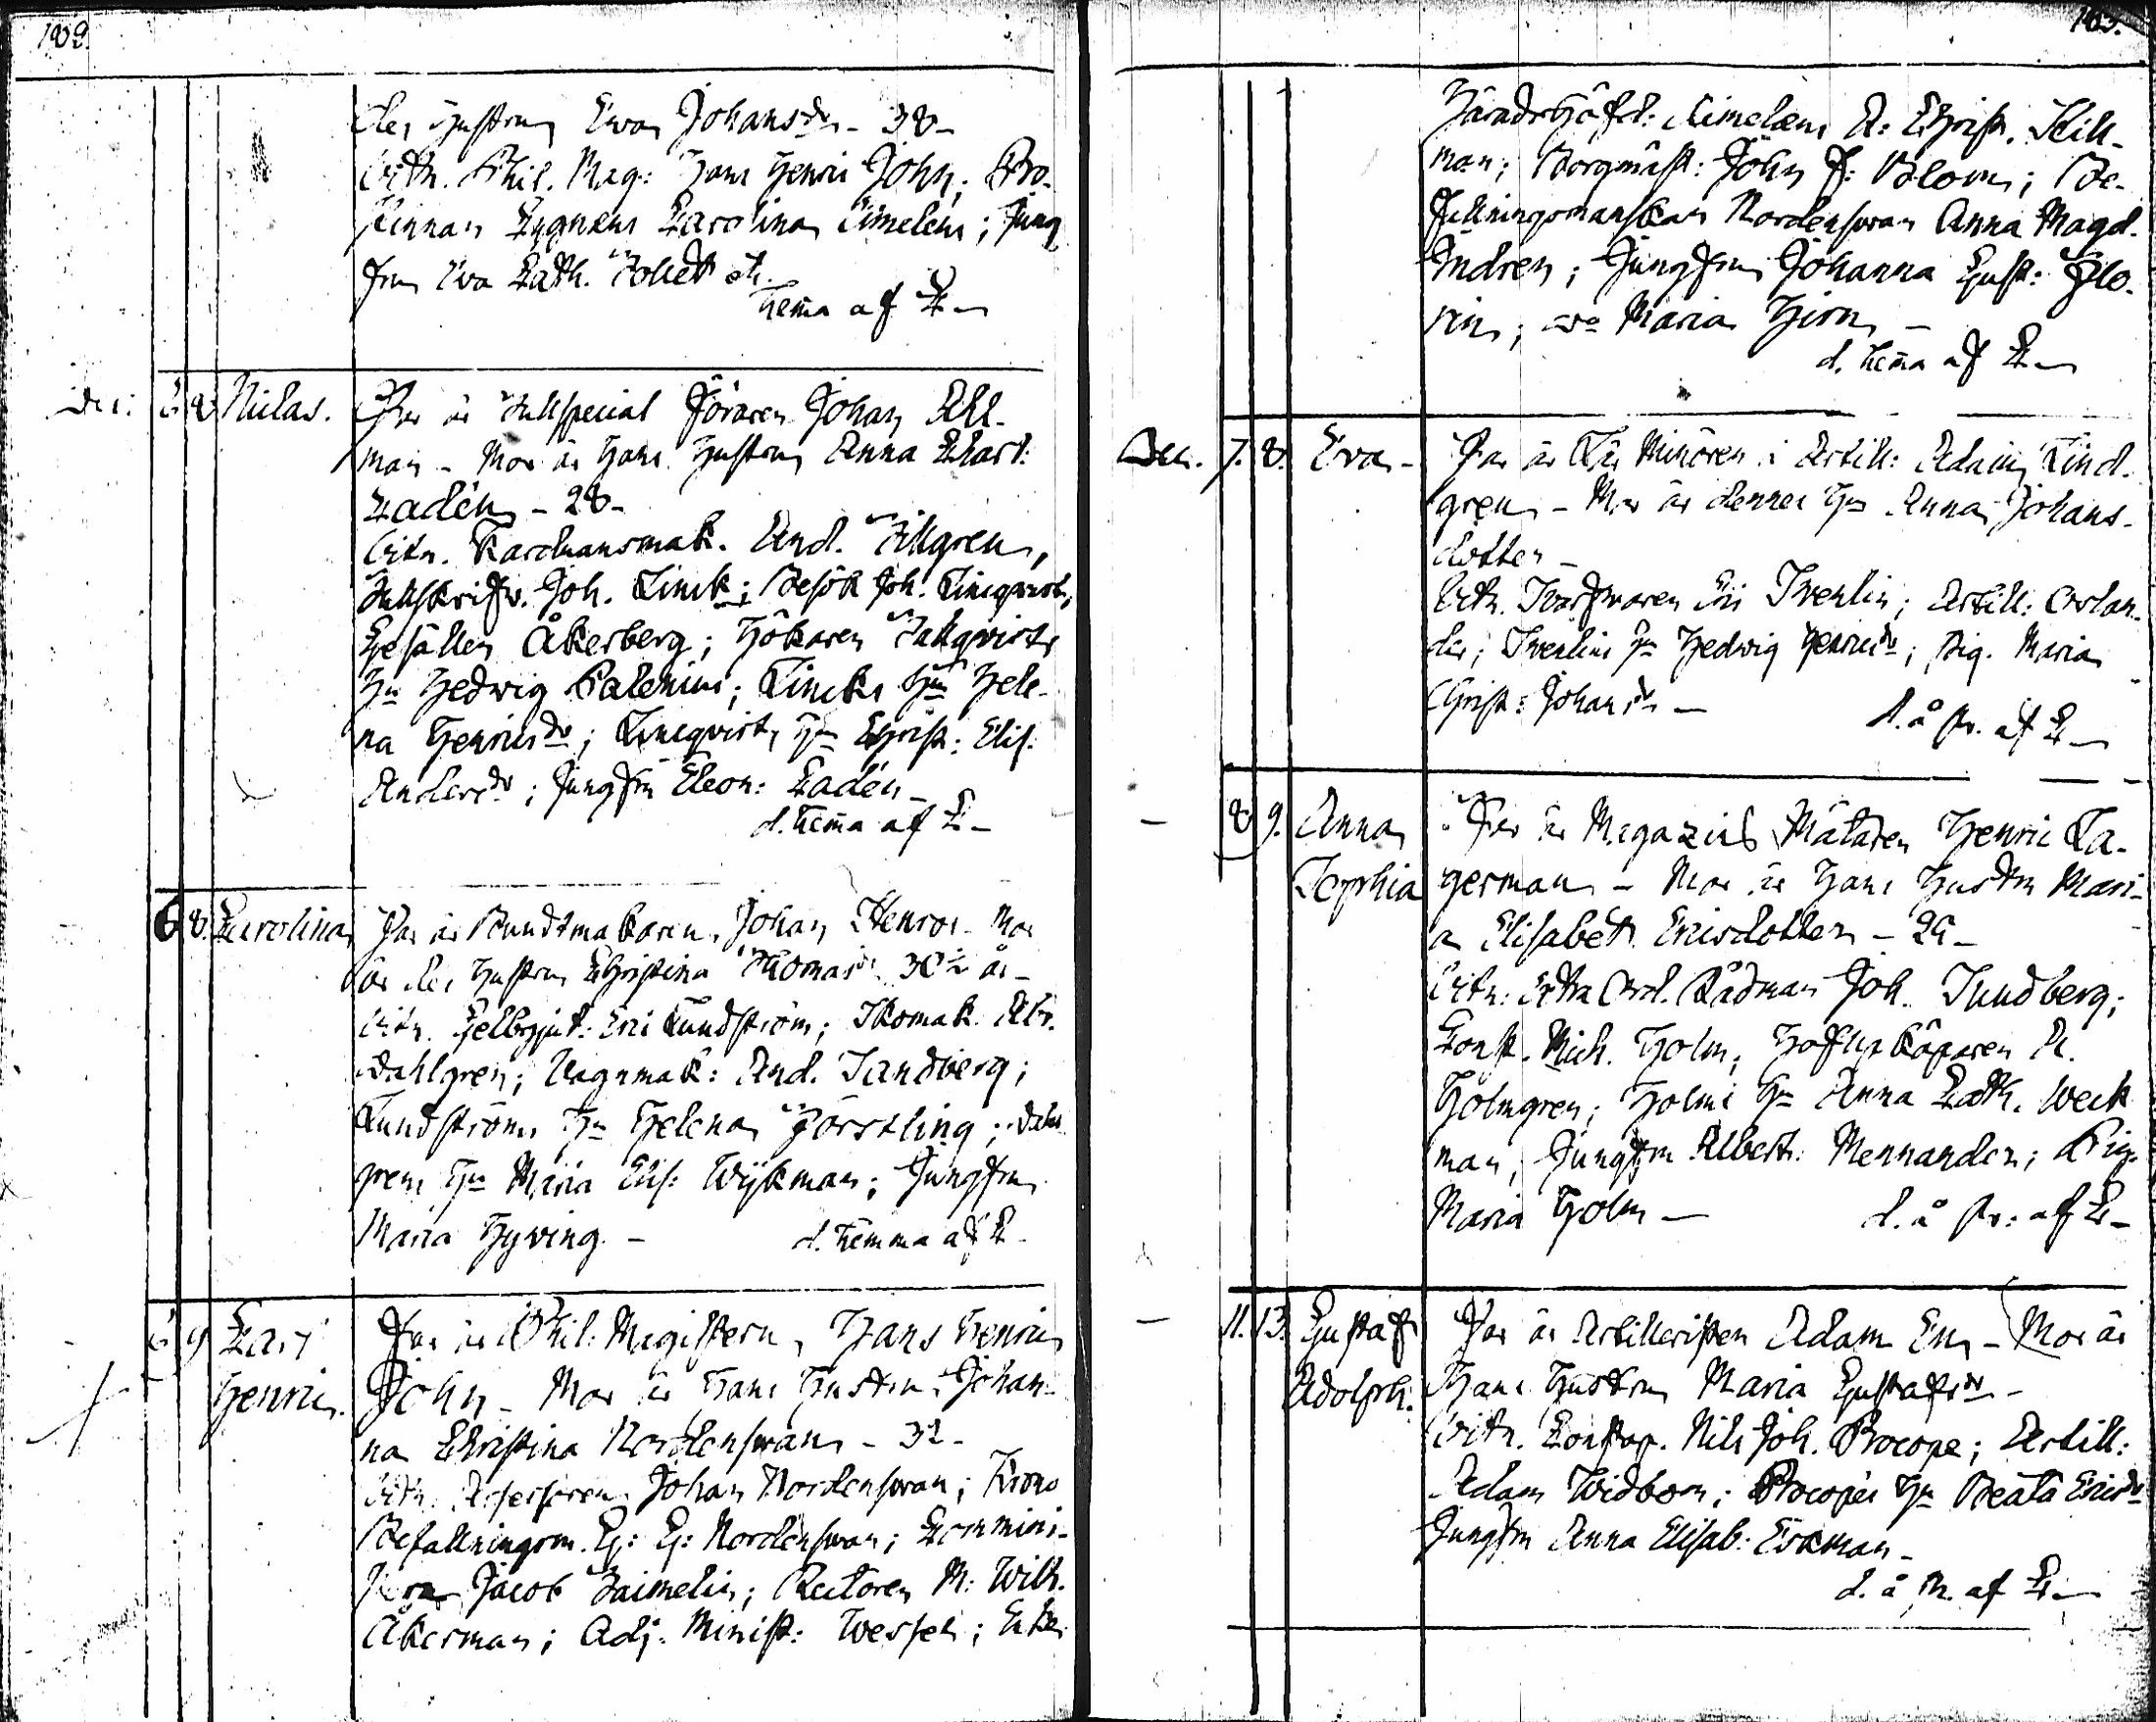 182.
des hustru Eva Johansdr - 38 -
Vittn. Phil. Mag: Hans Henric John; Pro-
Cygnæus Carolina Aimelæus; Jung
fru Eva Cath. Zollet etc.
hema af C
Dec: 6 8 Niclas.
Far är Tullspecial Föraren Johan Ahl-
man - Mor är Hans Hustru Anna Charl:
Cadén - 28 -
Vittn. Karduansmak. And. Tillgren,
Tullskrifv. Joh. Linck; Besök Joh. Lincqvist,
Gesällen Åkerberg; Hökaren Tallqvists
Hu Hedwig Palenius; Lincks Hu Hele-
na Henricsdr; Lincqvists Hu Christ: Elis:
Andersdr; Jungfru Eleon: Cadén -
d. hema af C -
6 8. Carolina
Far är Bundtmakaren Johan Stenros - Mor
är des Hustru Christina Thomasdr 30½ år -
Vittn. Gelbgjut: Eric Lundström; Skomak. Abr.
Dahlgren; Vagnmak: And. Sandberg;
Lundströms Hu Helena Görstling; Dahl
grens Hu Maria Elis: Wijkman; Jungfru
Maria Hyving - d. hemma af C -
6 9 Carl
Henric.
Far är Phil: Magistern, Hans Henric
John - Mor är Hans Hustru Johan-
na Christina Nordenswan - 32 -
Vittn. Assessoren Johan Nordenswan; Krono
Befallningsm. G: G: Nordenswan; Commini-
stern Jacob Haimelin; Rectoren M: Wilh.
Åkerman; Adj. Minist: Wessel; Enke
183.
Häradshöfd: Aimelæus A: Christ. Kill-
man; Borgmäst: John F: Blom; Be-
fallningsmanskan Nordenswan Anna Magd.
Indren; Jungfru Johanna Gust: Flo-
rin; Maria Hjern -
d. hema af C
Dec. 7. 8. Eva -
Far är Minören i Artill: Adam Lind-
gren - Mor är dennes Hu Anna Johans-
dotter -
Vittn. Svarfvaren Eric Svenlin; Artill: Orlan-
der; Svenlins Hu Hedwig Henricsdr; Pig. Maria
Christ: Johansdr - d. å Pr. af C
- 8 9. Anna
Sophia
Far är Magazins Mätaren Henric La-
german - Mor är Hans Hustru Mari-
a Elisabet Ericsdotter - 29 -
Vittn: Extra Ord. Rådman Joh. Sundberg;
Const. Mich. Holm; Hofslagaren A.
Holmgren; Holms Hu Anna Cath. Weck
man, Jungfru Albert: Mennander; Pig.
Maria Holm - d. å Pr: af C -
- 11. 13. Gustaf
Adolph.
Far är Artilleristen Adam En - Mor är
Hans Hustru Maria Gustafsdr -
Vittn. Constap. Nils Joh. Procope; Artill:
Adam Widbom; Procopes Hu Beata Ericsdr
Jungfru Anna Elisab: Eckman -
d. å Pr. af C